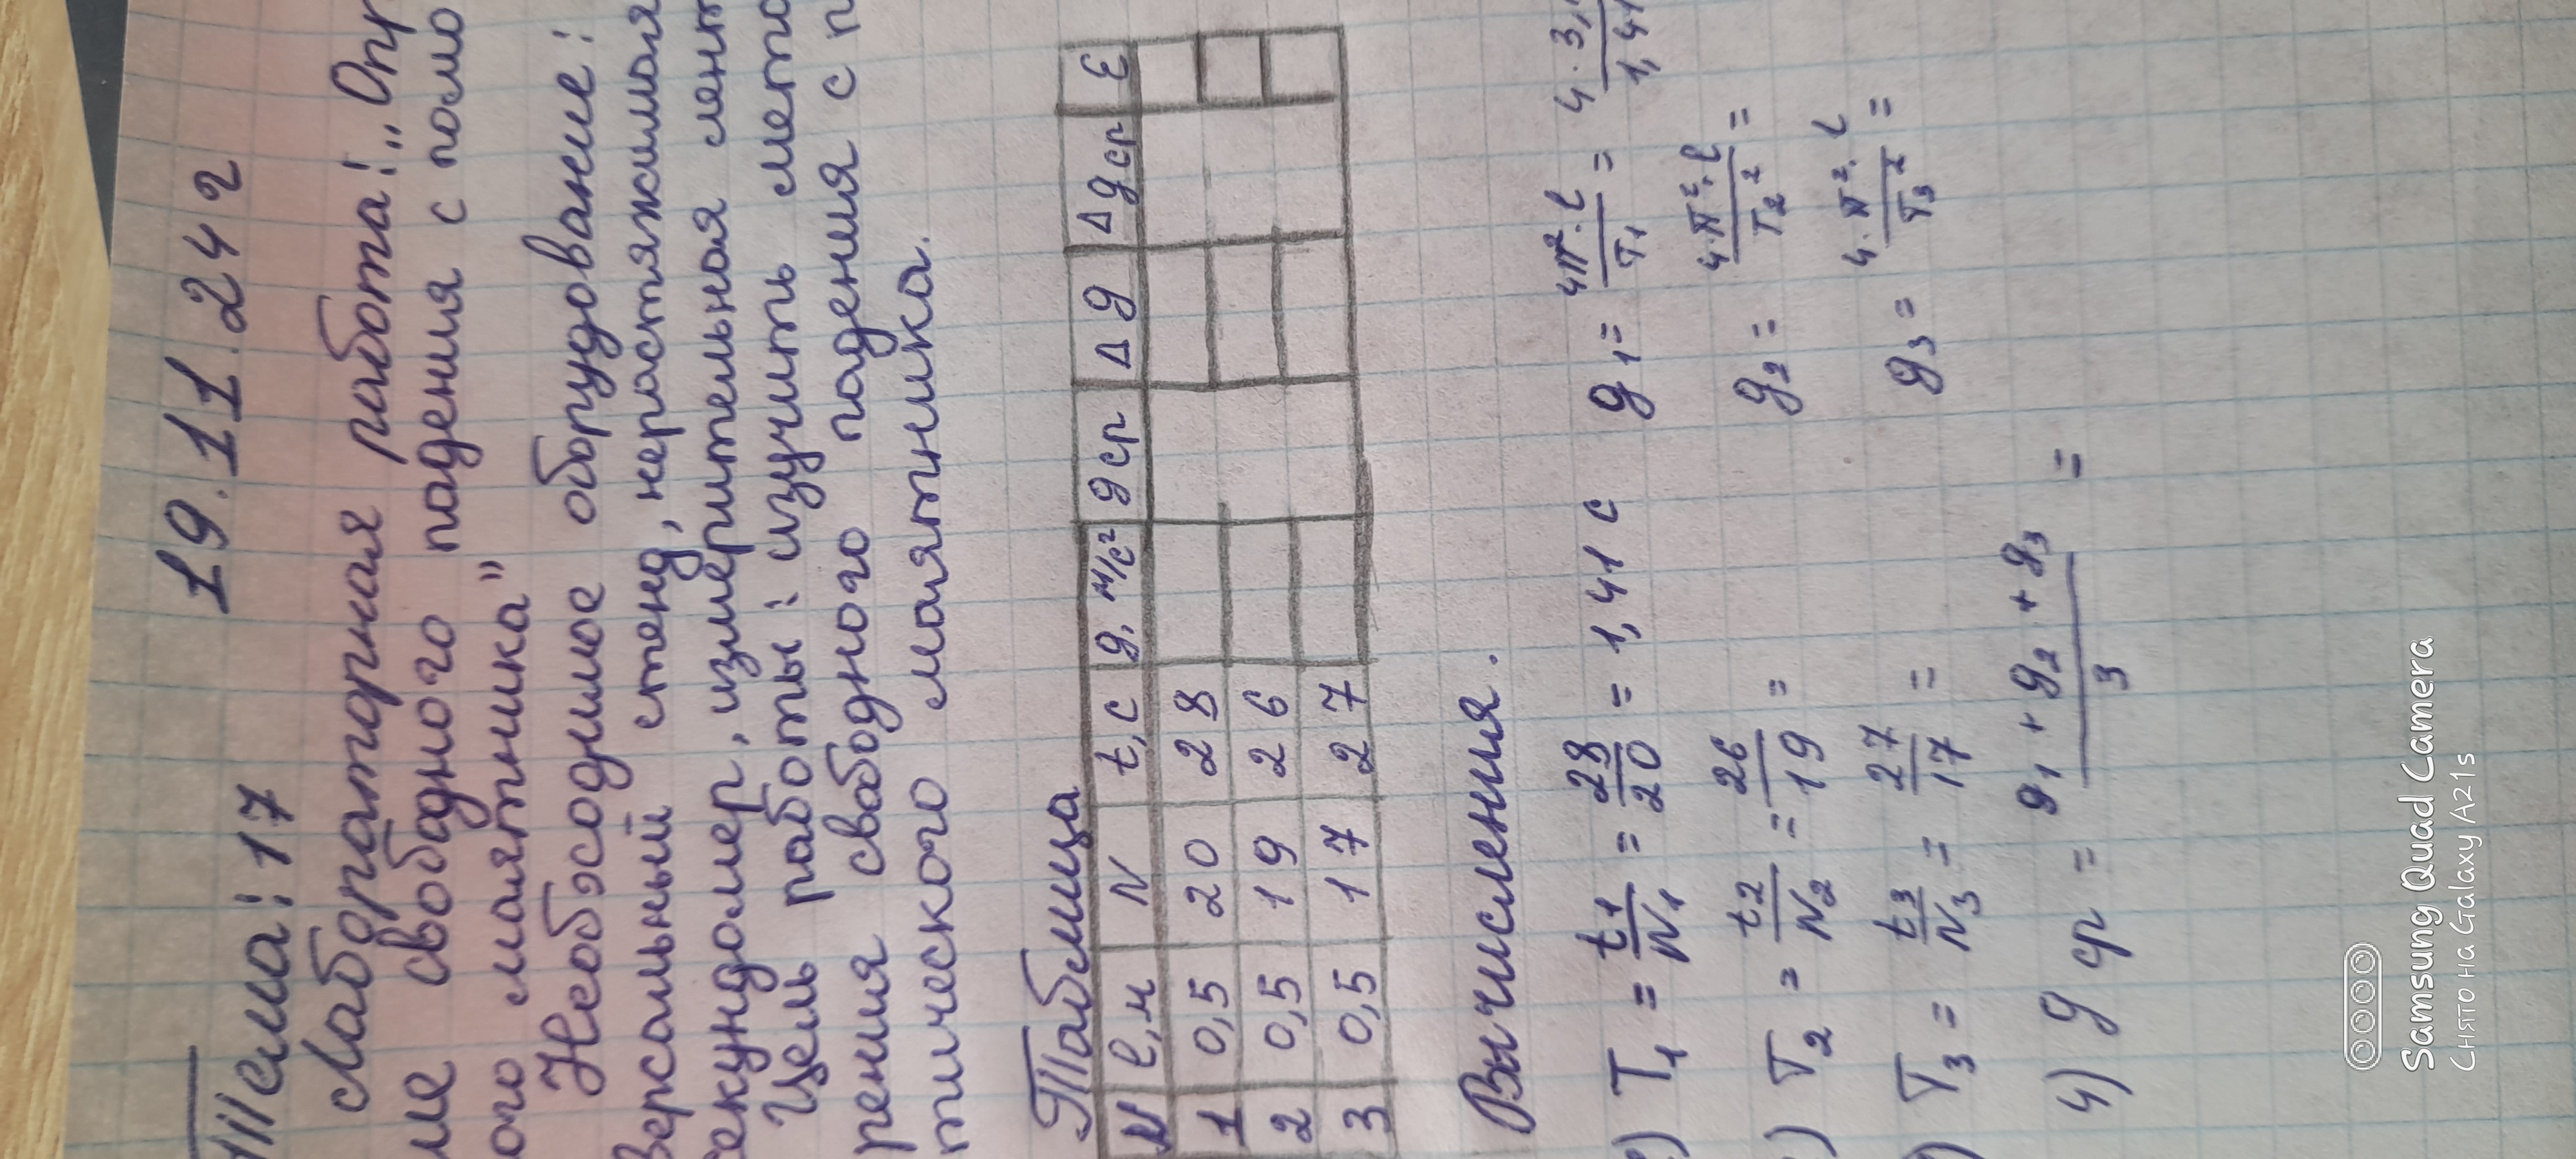 19.11.24 г
Тема: 17
Лабораторная работа: „Опр
ие свободного падения с помо
ого маятника”
Необходимое оборудование:
версальный стенд, нерастяжимая
секундомер, измерительная лент
Цель работы: изучить мето
рения свободного падения с п
тического маятника.
Таблица
N l,м N t,с g, м/с² gср Δg Δgср ε
1 0,5 20 28
2 0,5 19 26
3 0,5 17 27
Вычисления.
) T₁ = t₁/N₁ = 28/20 = 1,41 с g₁ = 4π²·l/T₁ = 4·3,1/1,41
) T₂ = t₂/N₂ = 26/19 = g₂ = 4·π²·l/T₂² =
) T₃ = t₃/N₃ = 27/17 = g₃ = 4·π²·l/T₃² =
4) g ср = g₁ + g₂ + g₃/3 =
Samsung Quad Camera
Снято на Galaxy A21s